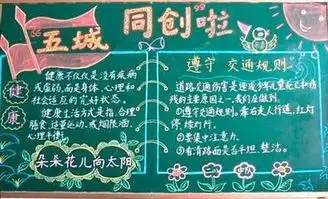 “五城同创”啦
健康
健康不仅仅是没有疾病
或虚弱,而是身体、心理和
社会适应的完好状态。
健康生活方式是指,合理
膳食、适量运动、戒烟限酒、
心理平衡。
朵朵花儿向太阳
遵守交通规则
道路交通伤害是造成少年儿童死亡和伤
残的主要原因之一,我们应做到:
①遵守交通规则,靠右走人行道,红灯
停,绿灯行。
②要集中注意力。
③看清路面是否平坦、整洁。